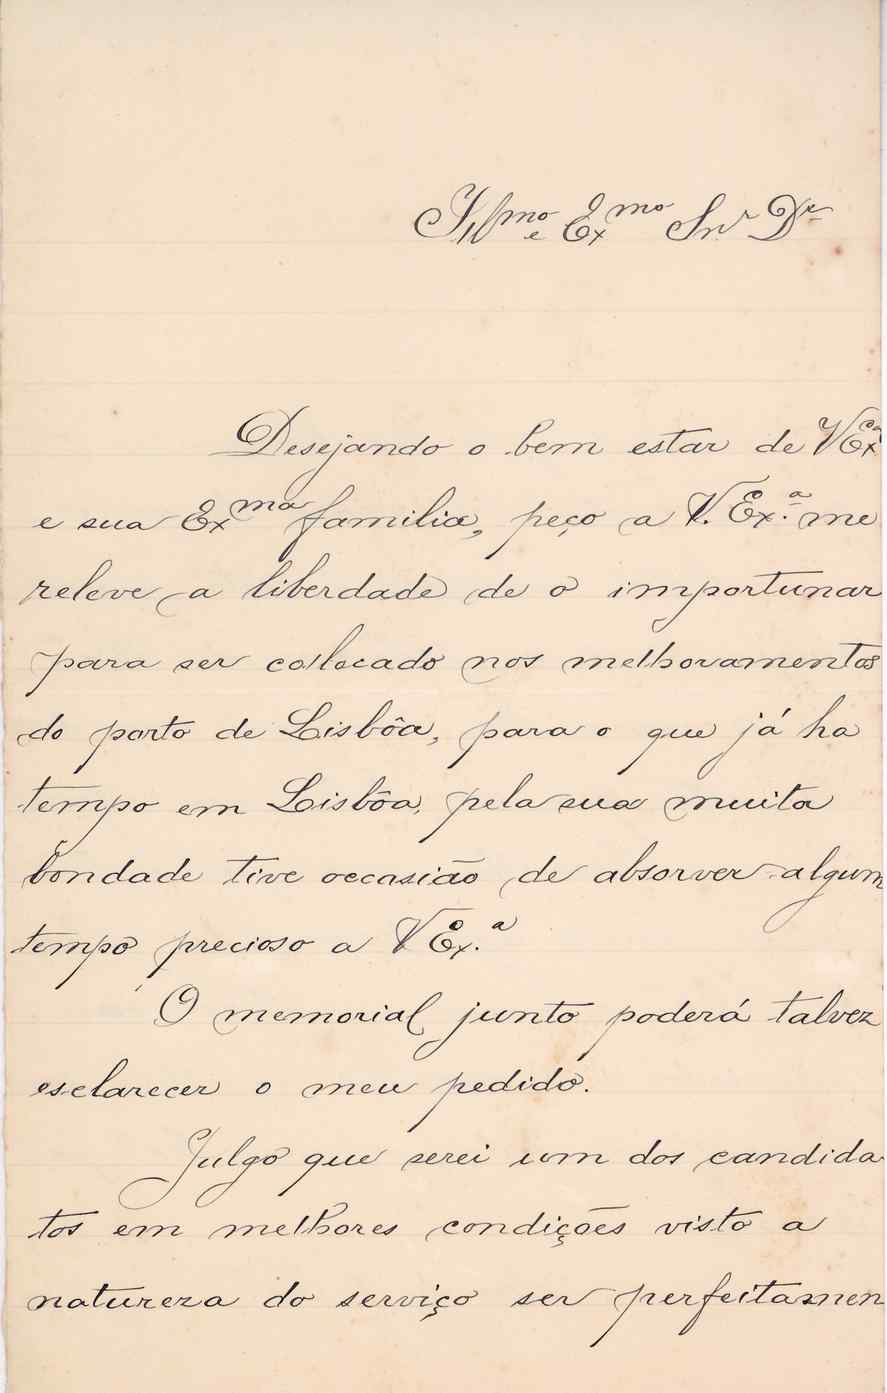 Illmo e Exmo Snr Dr
Desejando o bem estar de V Exa
e sua Exma familia, peço a V. Ex.a me
releve a liberdade de o importunar
para ser collocado nos melhoramentos
do porto de Lisbôa, para o que já ha
tempo em Lisbôa, pela sua muita
bondade tive occasião de absorver algum
tempo precioso a V Ex.a
O memorial junto poderá talvez
esclarecer o meu pedido.
Julgo que serei um dos candida
tos em melhores condições visto a
natureza do serviço ser perfeitamen